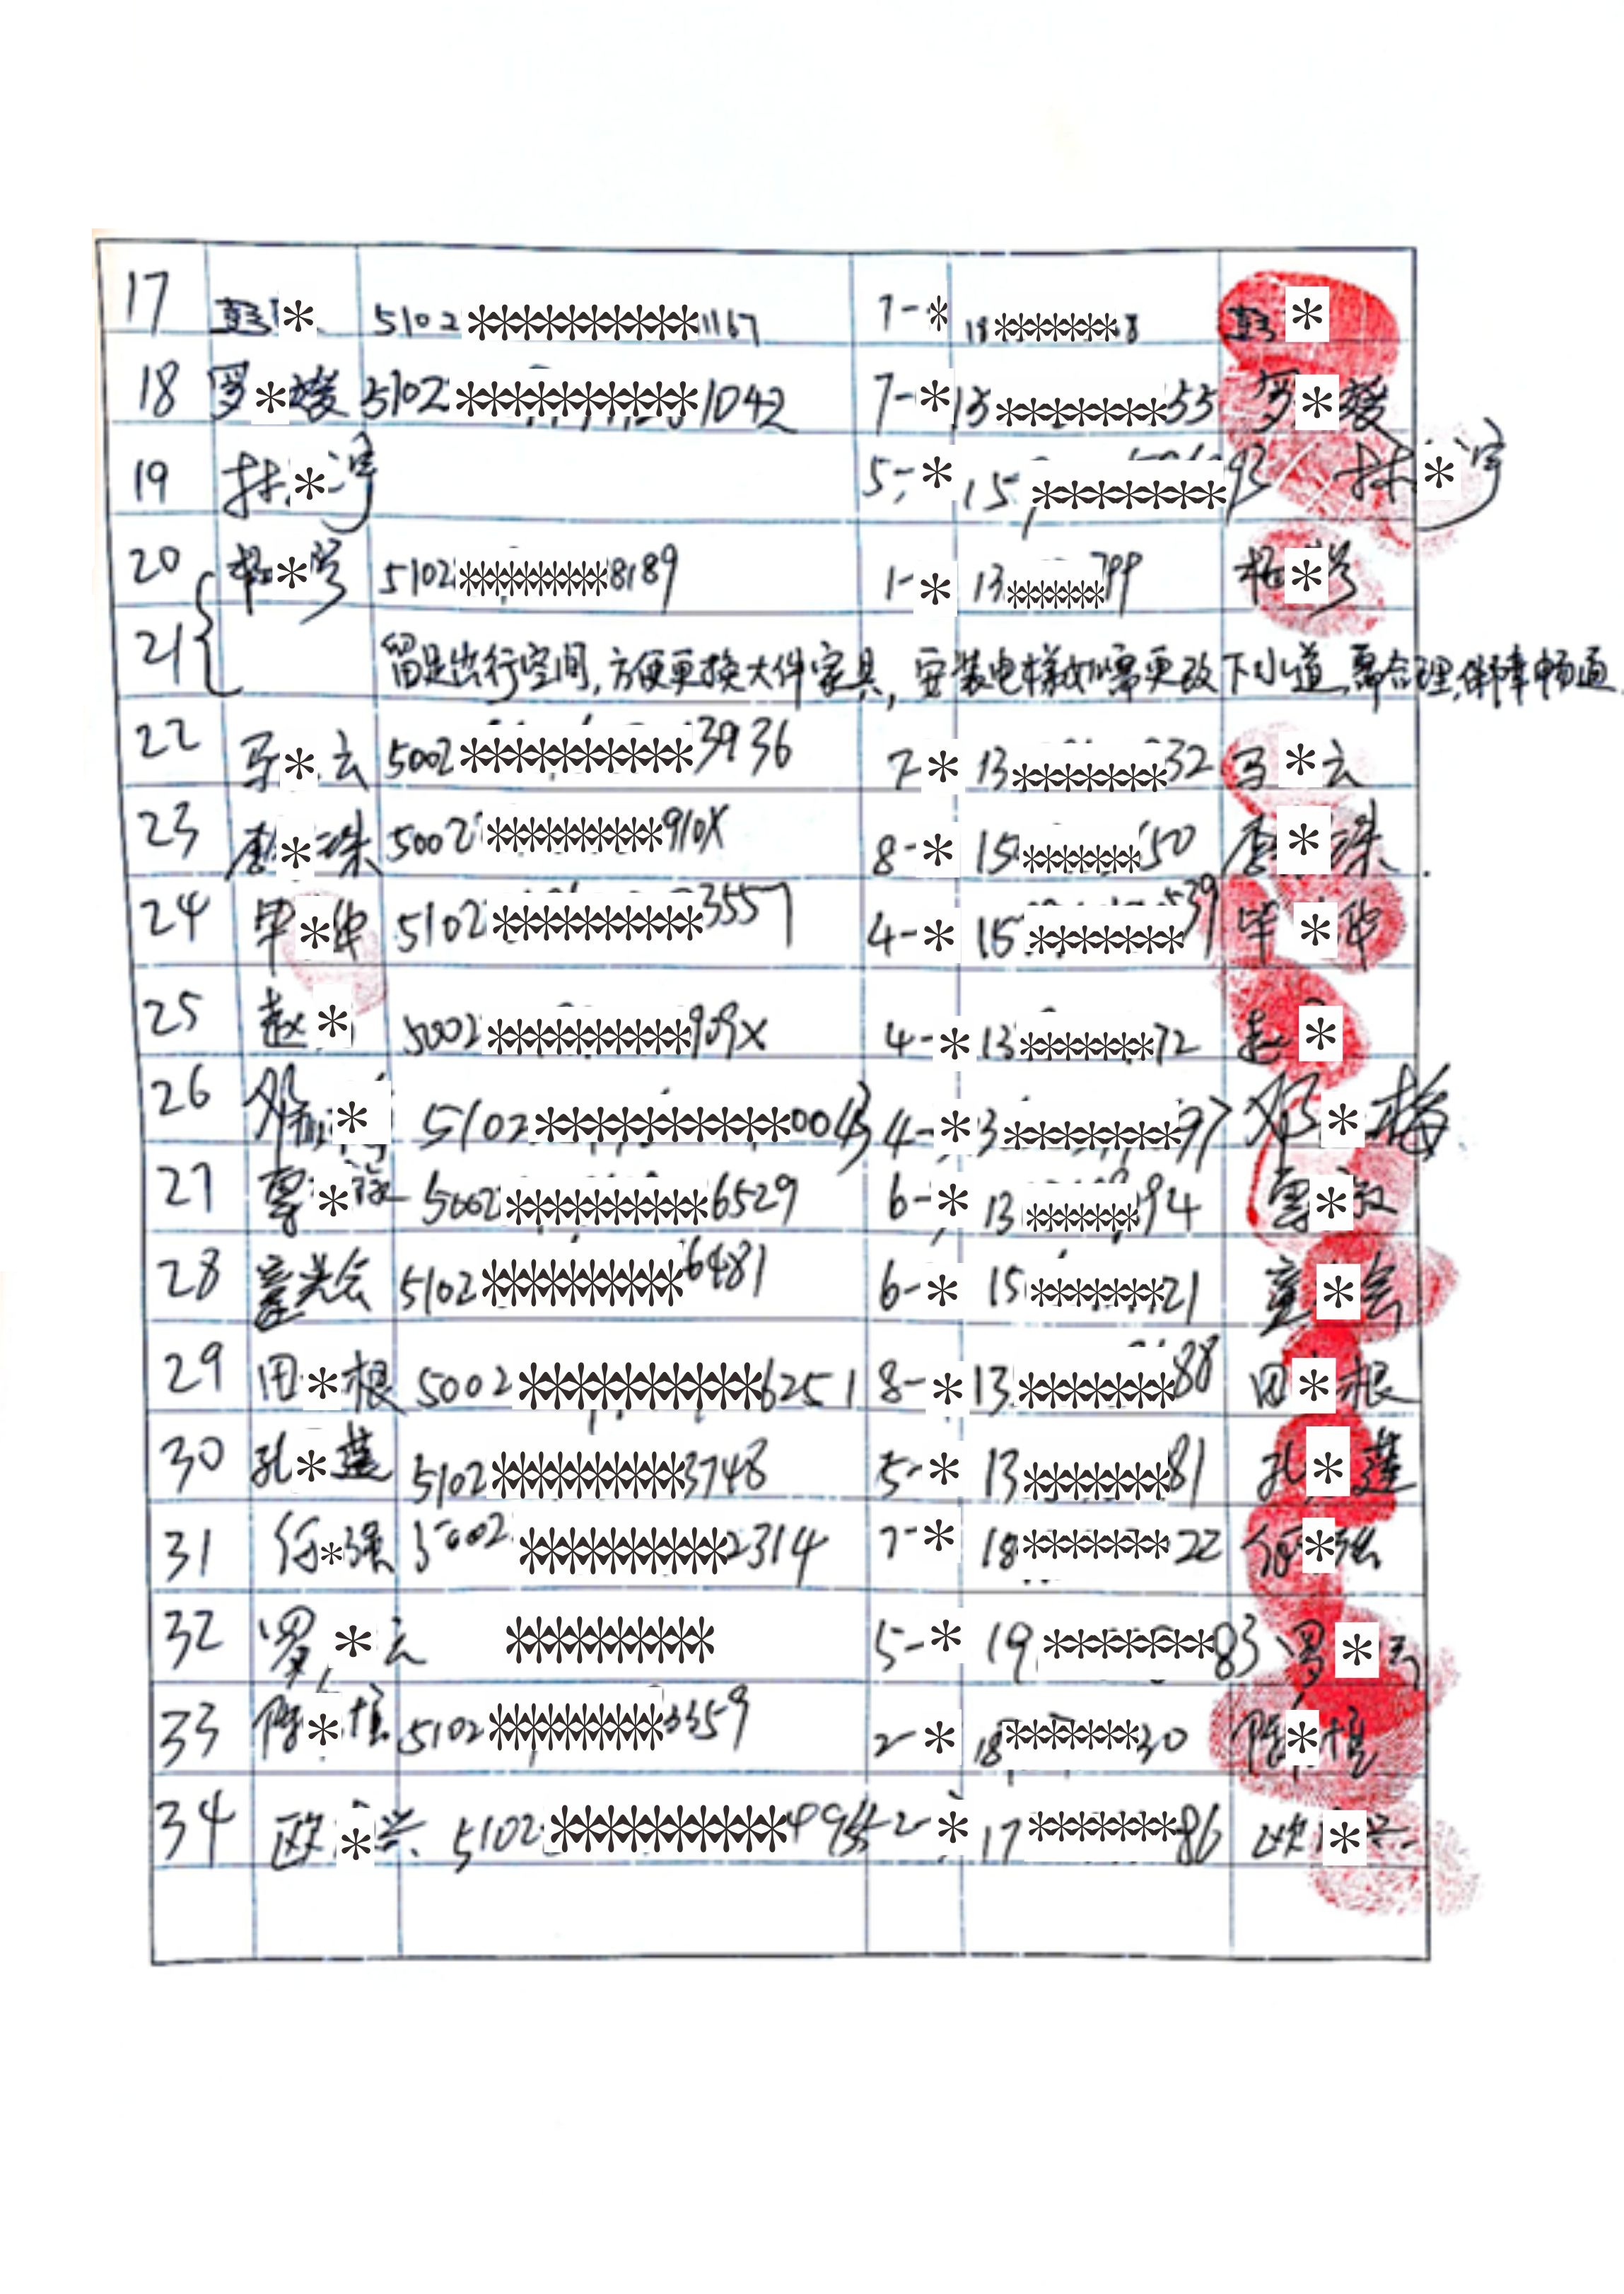 17 彭* 5102**********1167 7-* 18*******8 彭*
18 罗*媛 5102**********1042 7-* 13*******55 罗*媛
19 林*宇 5-* 15********93 林*宇
20 杨* 5102*********8189 1-* 13******799 杨*
21 留足出行空间,方便更换大件家具,安装电梯如需更改下水道,需合理,保障畅通.
22 马*云 5002**********3936 7-* 13*******32 马*云
23 唐*珠 5002*********910X 8-* 15*******50 唐*珠
24 毕*华 5102**********3557 4-* 15*******539 毕*华
25 赵* 5002**********909X 4-* 13*******72 赵*
26 邓* 5102***********0043 4-* 13********97 邓*梅
27 5002**********6529 6-* 13*******94
28 童兴会 5102**********6481 6-* 15*******21 童*会
29 田*根 5002***********6251 8-* 13********88 田*根
30 孔*莲 5102*********3748 5-* 13*******81 孔*莲
31 何*强 5002**********2314 7-* 18*******22 何*强
32 罗*云 ********** 5-* 19********83 罗*云
33 陈* 5102*********3359 2-* 18*******30 陈*
34 欧*兴 5102*********** 2-* 17********86 欧*兴